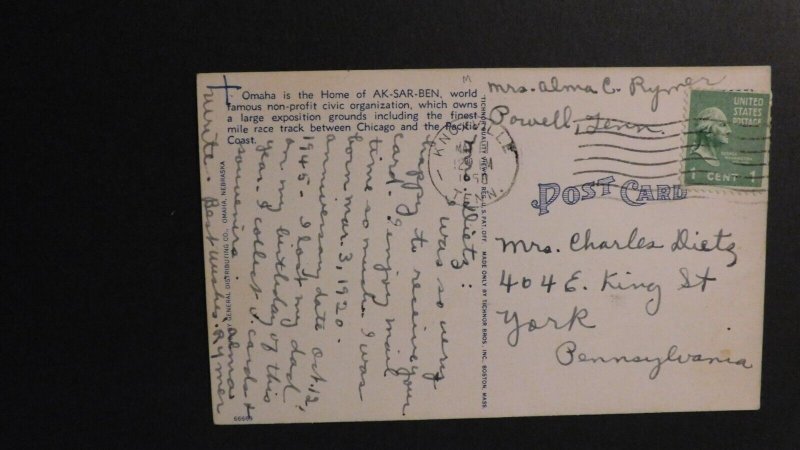 Omaha is the Home of AK-SAR-BEN, world
famous non-profit civic organization, which owns
a large exposition grounds including the finest
mile race track between Chicago and the Pacific
Coast.
BY GENERAL DISTRIBUTING CO., OMAHA, NEBRASKA
66565
TICHNOR QUALITY VIEWS REG. U. S. PAT. OFF. MADE ONLY BY TICHNOR BROS., INC., BOSTON, MASS.
Mrs. Dietz:
I was so very
happy to receive your
card. I enjoy mail
time so much. I was
born Mar. 3, 1920.
anniversary date Oct. 12,
1945. I lost my dad
on my birthday of this
year. I collect V. cards &
souvenirs. Alma
Write. Best Wishes, Rymer
Mrs. Alma C. Rymer
Powell, Tenn.
KNOXVILLE
TENN.
UNITED
STATES
POSTAGE
1 CENT 1
POST CARD
Mrs. Charles Dietz
404 E. King St
York
Pennsylvania